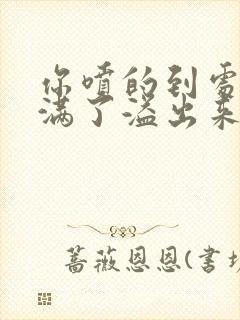 你喷的到需
满了溢出来
蔷薇恩恩(书坊